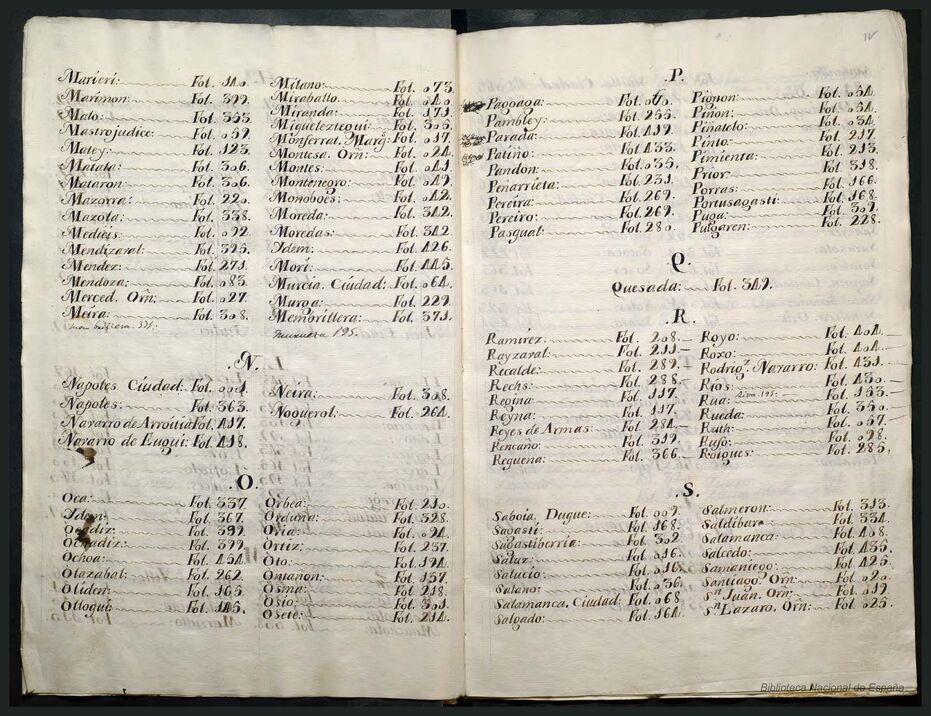 Marieri: Fol. 340.
Marimon: Fol. 399.
Malo: Fol. 353.
Mastrojudice: Fol. 052.
Matey: Fol. 123.
Matala: Fol. 306.
Mataron: Fol. 306.
Mazorra: Fol. 220.
Mazola: Fol. 338.
Medicis: Fol. 092.
Mendizaval: Fol. 395.
Mendez: Fol. 271.
Mendoza: Fol. 083.
Merced. Orn: Fol. 027.
Meira: Fol. 308.
Milano: Fol. 073.
Miraballo. Fol.
Miranda: Fol. 171.
Migueleztegui: Fol. 305.
Monferrat, Marq: Fol. 017.
Montesa. Orn: Fol. 024.
Montes: Fol.
Montenegro: Fol.
Monoboes: Fol.
Moreda: Fol. 342.
Moredas: Fol. 342.
Idem: Fol. 426.
Mori: Fol. 445.
Murcia. Ciudad: Fol. 064.
Muroa: Fol. 229.
Membrillera: Fol. 371.
munuera 195.
.N.
Napoles. Ciudad: Fol. 001.
Napoles: Fol. 363.
Navarro de Arroitia: Fol. 417.
Navarro de Eugui: Fol. 418.
Neira: Fol. 308.
Noguerol: Fol. 264.
.O.
Oca: Fol. 337.
Idem: Fol. 367.
Fol. 399.
Ochadiz: Fol. 399.
Ochoa: Fol. 454.
Olazabal: Fol. 262.
Oliden: Fol. 165.
Olloqui: Fol. 145.
Orbea: Fol. 210.
Orduña: Fol. 328.
Oria: Fol. 094.
Ortiz: Fol. 237.
Oto: Fol. 194.
Ontañon: Fol. 157.
Osma: Fol. 218.
Osio: Fol. 301.
Osete: Fol. 214.
IV
.P.
Pagoaga: Fol.
Pambley: Fol. 255.
Parada: Fol. 419.
Patiño: Fol. 433.
Pandon: Fol. 035.
Peñarrieta: Fol. 231.
Pereira: Fol. 269.
Pereiro: Fol. 269.
Pasqual: Fol. 280.
Pignon: Fol. 054.
Piñon: Fol. 054.
Piñatelo: Fol. 034.
Pinto: Fol. 217.
Pimienta: Fol. 213.
Prior: Fol. 318.
Porras: Fol. 166.
Portusagasti: Fol. 168.
Puga: Fol. 309.
Pulgaren: Fol. 228.
Q
Quesada: Fol. 349.
.R.
Ramirez: Fol. 208.
Rayzaval: Fol. 211.
Recalde: Fol. 289.
Rechs: Fol. 288.
Regina: Fol. 117.
Reyna: Fol. 117.
Reyes de Armas: Fol. 284.
Rencaño: Fol. 319.
Reguena: Fol. 366.
Royo: Fol. 404.
Roxo: Fol. 404.
Rodrigz. Navarro: Fol. 431.
Rios: Fol. 430.
Rua: Riva 195. Fol. 153.
Rueda: Fol. 350.
Ruth: Fol. 057.
Rufo: Fol. 098.
Roigues: Fol. 285.
.S.
Saboia, Duque: Fol. 009.
Sagasti: Fol. 168.
Sagastiberria: Fol. 302.
Saluz: Fol. 016.
Salucio: Fol. 016.
Salano: Fol. 036.
Salamanca. Ciudad: Fol. 068.
Salgado: Fol. 164.
Salmeron: Fol. 313.
Saldibar: Fol. 334.
Salamanca: Fol. 408.
Salcedo: Fol. 435.
Samaniego: Fol. 425.
Santiago, Orn: Fol. 020.
Sn. Juan. Orn: Fol. 019.
Sn. Lazaro. Orn: Fol. 025.
Biblioteca Nacional de España